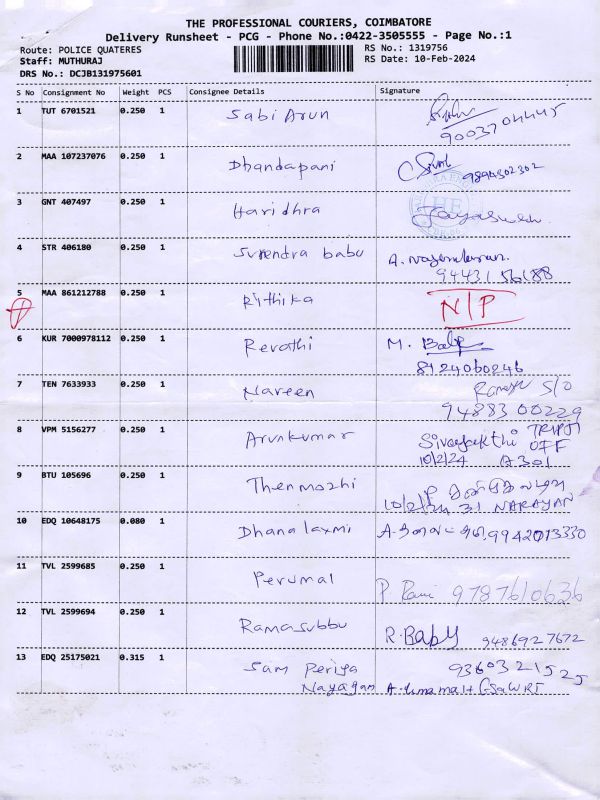 THE PROFESSIONAL COURIERS, COIMBATORE
Delivery Runsheet - PCG - Phone No.:0422-3505555 - Page No.:1
Route: POLICE QUATERES RS No.: 1319756
Staff: MUTHURAJ RS Date: 10-Feb-2024
DRS No.: DCJB131975601
S No Consignment No Weight PCS Consignee Details Signature
1 TUT 6701521 0.250 1 Sabi Arun
9003704445
2 MAA 107237076 0.250 1 Dhandapani 9894302302
3 GNT 407497 0.250 1 Haridhra HE
4 STR 406180 0.250 1 Surendra babu A.
94431 56188
5 MAA 861212788 0.250 1 Rithika N/P
6 KUR 7000978112 0.250 1 Revathi M.
8124060246
7 TEN 7633933 0.250 1 Naveen S/O
94883 00229
8 VPM 5156277 0.250 1 Arunkumar
10/2/24 A301
9 BTU 105696 0.250 1 Thenmozhi
10/2/24 31 NARAYAN
10 EDQ 10648175 0.080 1 Dhanalaxmi 9942013330
11 TVL 2599685 0.250 1 Perumal P. 9787610636
12 TVL 2599694 0.250 1 Ramasubbu R. Baby 9486927672
13 EDQ 25175021 0.315 1 Sam Periya 9360321525
Nayagam